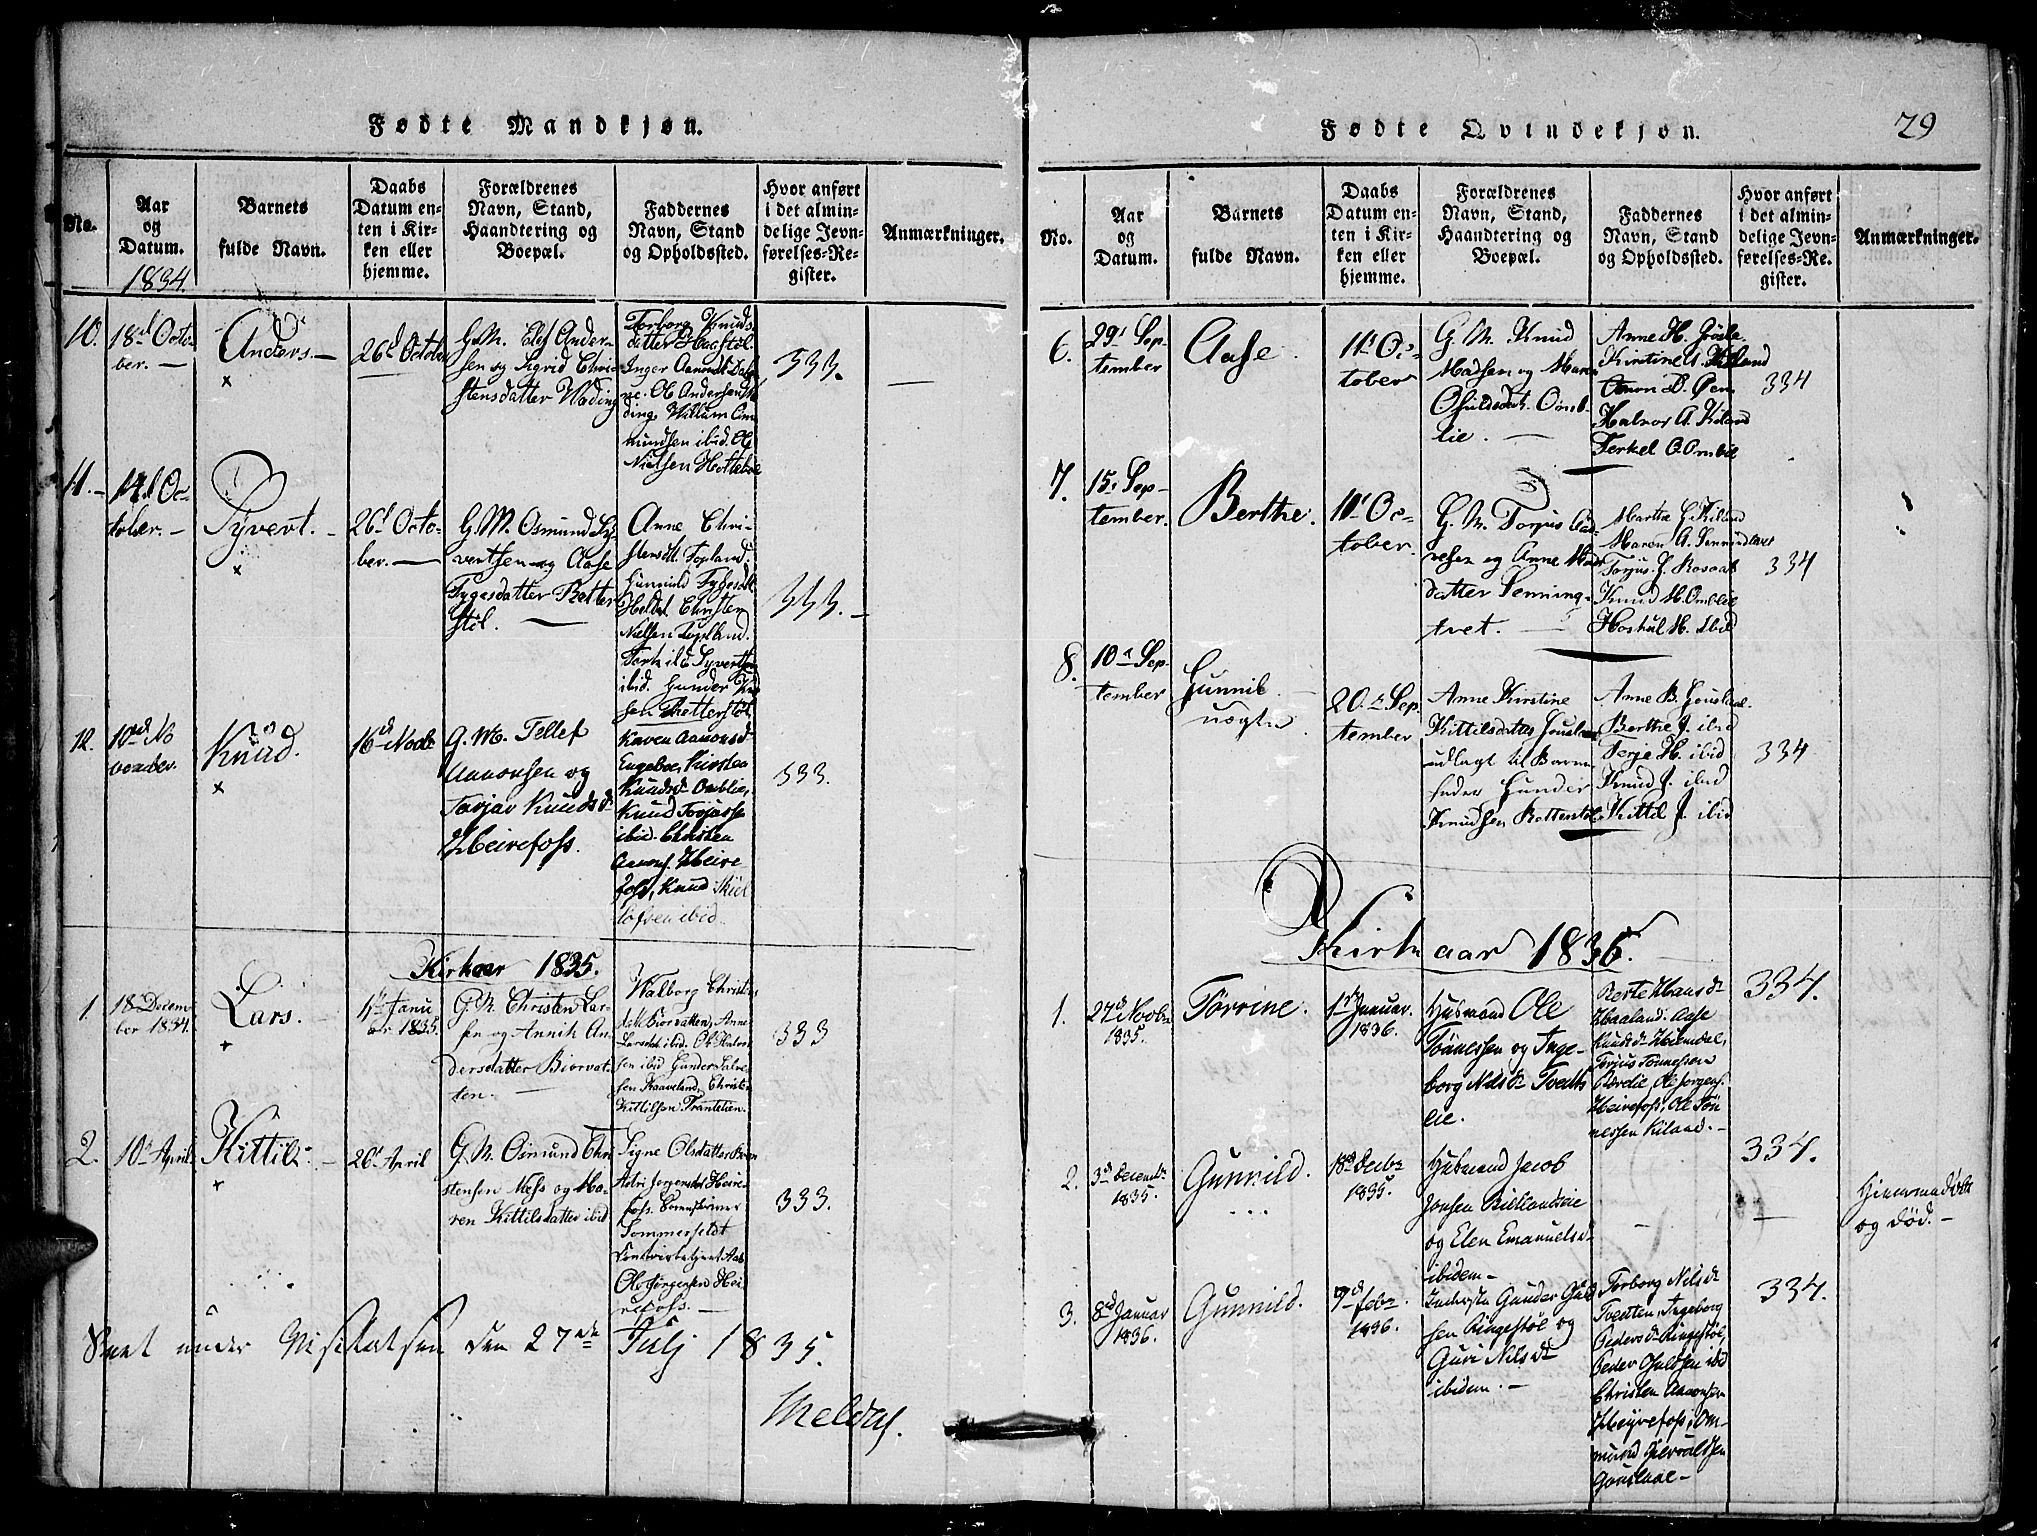 Fødte Mandkjøn.
No.
Aar
og
Datum.
1834.
Barnets
fulde Navn.
Daabs
Datum en-
ten i Kir-
ken eller
hjemme.
Forældrenes
Navn, Stand,
Haandtering og
Boepæl.
Faddernes
Navn, Stand
og Opholdssted.
Hvor anført
i det almin-
delige Jevn-
førelses-Re-
gister.
Anmærkninger.
10.
18d Octo-
ber. —
Anders —
26d October
G. M. Elef Ander-
sen og Sigrid Chri-
stensdatter Væding
Torborg Knuds-
datter Hagstøl
Inger Aanonsd.
Ole Andersen
ding, Willum Om-
mundsen ibid. Ole
Nielsen
333.
—
11. —
14d Oc-
tober. —
Syvert. —
26d Octo-
ber. —
G. M. Osmund Sy-
vertsen og Aase
Tygesdatter Retter-
støl. —
Anne Chri-
stensdt. Topland.
Gunnild Tygesdt.
Christen
Nielsen Topland.
Torkild Syvertsen
ibid. Gunder Knud
sen Retterstøl,
333. —
12.
10d No
vember.
Knud.
16d Novbr
G. M. Tellef
Aanonsen og
Torjær Knudsdr
Heirefoss.
Karen Aanonsd
Engeboe, Kirsten
Knudsdr Omblie,
Knud Torjussen
ibid. Christen
Aanons. Heire
foss, Knud
ibid.
333.
Kirkaar 1835.
1.
18d Decem-
ber 1834.
Lars.
4d Janu
ar 1835.
G. M. Christen Lar-
sen og Annik An-
dersdatter Biorvat-
ten. —
Walborg Christens
datt. Biorvatten, Anne
Larsdatt ibid. Ole Halvor
sen ibid Gunder Salve-
sen Kaaveland, Christen
Kittilsen Trantelien.
333
2.
10d April
Kittil. —
26d April
G. M. Osmund Chri
stensen Mess og Ma-
ren Kittilsdatter ibid
Signe Olsdatter
Astri Jørgensdt Heire-
foss.
Sommerfeldt
Ole Jørgensen Hei
refoss. —
333.
Seet under Visitatsen den 27de Julj 1835.
Fødte Qvindekjøn.
79
No.
Aar
og
Datum.
Barnets
fulde Navn.
Daabs
Datum en-
ten i Kir-
ken eller
hjemme.
Forældrenes
Navn, Stand,
Haandtering og
Boepæl.
Faddernes
Navn, Stand
og Opholdssted.
Hvor anført
i det almin-
delige Jevn-
førelses-Re-
gister.
Anmærkninger.
6.
29d Sep-
tember
Aase.
11d Oc-
tober
G. M. Knud
Madsen og Maren
Osuldsdt. Omb-
lie. —
Anne H.
Kirstine A. Kiland
Aanon D.
Halvor A. Kiland
Terkel O Omblie
334
7.
15d Sep-
tember.
Berthe.
11d Oc-
tober.
G. M. Torjus Aad-
nesen og Anne
datter Senning-
tvet. —
Marthe G Kiland
Maren A. Senningtvet
Torjus G. Rosaas
Knud M. Omblie
Hoskul M. ibid
334
8.
10d Sep-
tember
Gunnil
uægte
20d Sep
tember
Anne Kirstine
Kittilsdatter Gouslaae
udlagt til Barne
fader Gunder
Knudsen Rettenstøl
Anne B. Gouslaae
Berthe J. ibid
Terje H. ibid
Knud J. ibid
Kittil J. ibid
334
Kirkaar 1836.
1.
27d Novbr
1835.
Torrine.
1d Januar.
1836.
Husmand Ole
Tønnessen og Inge-
borg Nilsdr Tvedts
eie.
Berte Hansdr
Haaland. Aase
Knudsdr Heimdal,
Torjus Tønnessen
Ole Jørgens.
Heirefoss, Ole Tøn
nessen Kiland. —
334.
2.
3d Decembr
1835.
Gunnild.
18d Decbr
1835.
Husmand Jacob
Jonsen Biellandseie
og Elen Emanuelsdr
ibidem —
—
334.
—
Hjemmedøbt
og død. —
3.
8d Januar
1836.
Gunnild.
7d Febr.
1836.
Inderste Gunder Guld
sen Ringestøl og
Guri Nilsdr
ibidem. —
Torborg Nilsdr
Tvedten, Ingeborg
Pedersdr Ringestøl,
Peder Guldsen ibid
Christen Aanonsen
Heirefoss, Om-
mund
Gouslaae —
334.